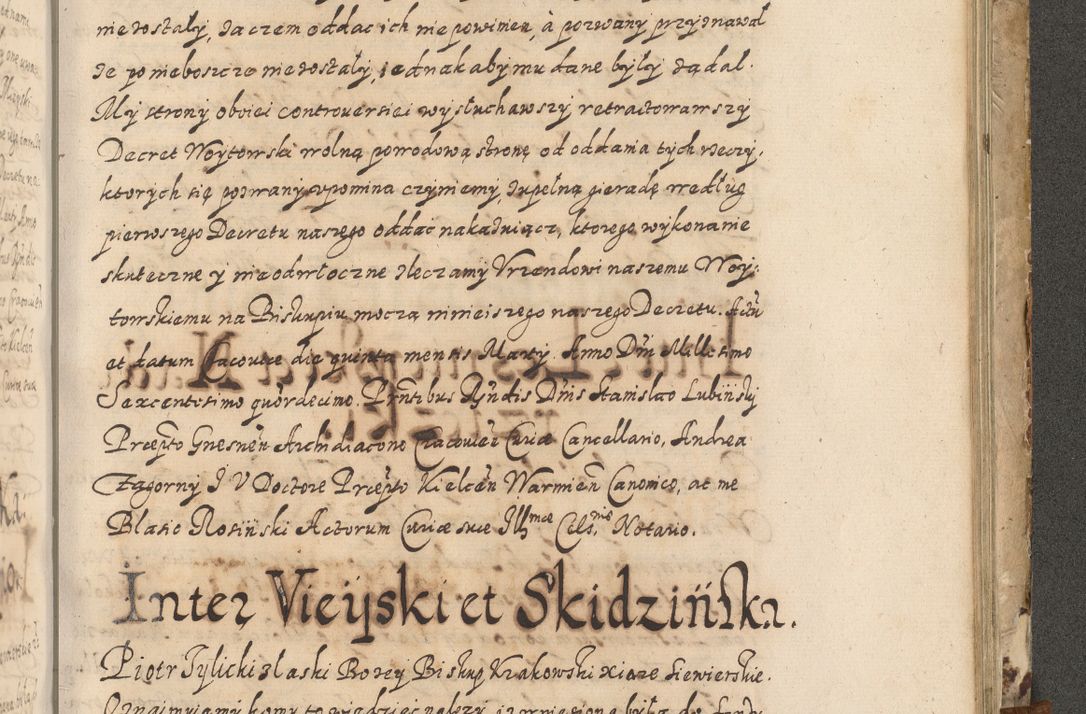 nie zostały, zaczem oddac ich nie powinien, à pozwany przyznawał
że po nieboszcze nie zostały, iednak aby mu dane były żądał.
My strony oboiei controuersiei wysłuchawszy retractowawszy
Decret Woytowski wolną powodową stronę od oddania tych rzeczy,
ktorych się pozwany vpomina czyniemy, zupełną gieradę według
pierwszego Decretu naszego oddać nakazuiącz, ktorego wykonanie
skuteczne y nieodwłoczne zleczamy Vrzendowi naszemu Woy:
towskiemu na Biskupiu moczą ninieiszego naszego Decretu. Actũ
et datum Cracouiæ die quinta mensis Marty Anno Dñi Millesimo
Sexcentesimo quo͂rdecimo. Prñtibus Rṽndis Dñis Stanislao Lubiński
Præpto Gnesneñ Archidiacono Cracouień Curiæ Cancellario, Andrea
Zagorny I V Doctore Præpto Kielceń Warmień Canonico, ac me
Blasio Rosiński Actorum Curiæ suæ Illmæ Cels.niæ Notario.
Inter Vieyski et Skidzińską.
Piotr Tylicki z laski Bozey Biskup Krakowski xiąże Siewierskie.
Oznaimuiamy komu to wiedzieć należy, iż wniesiona była do sądu